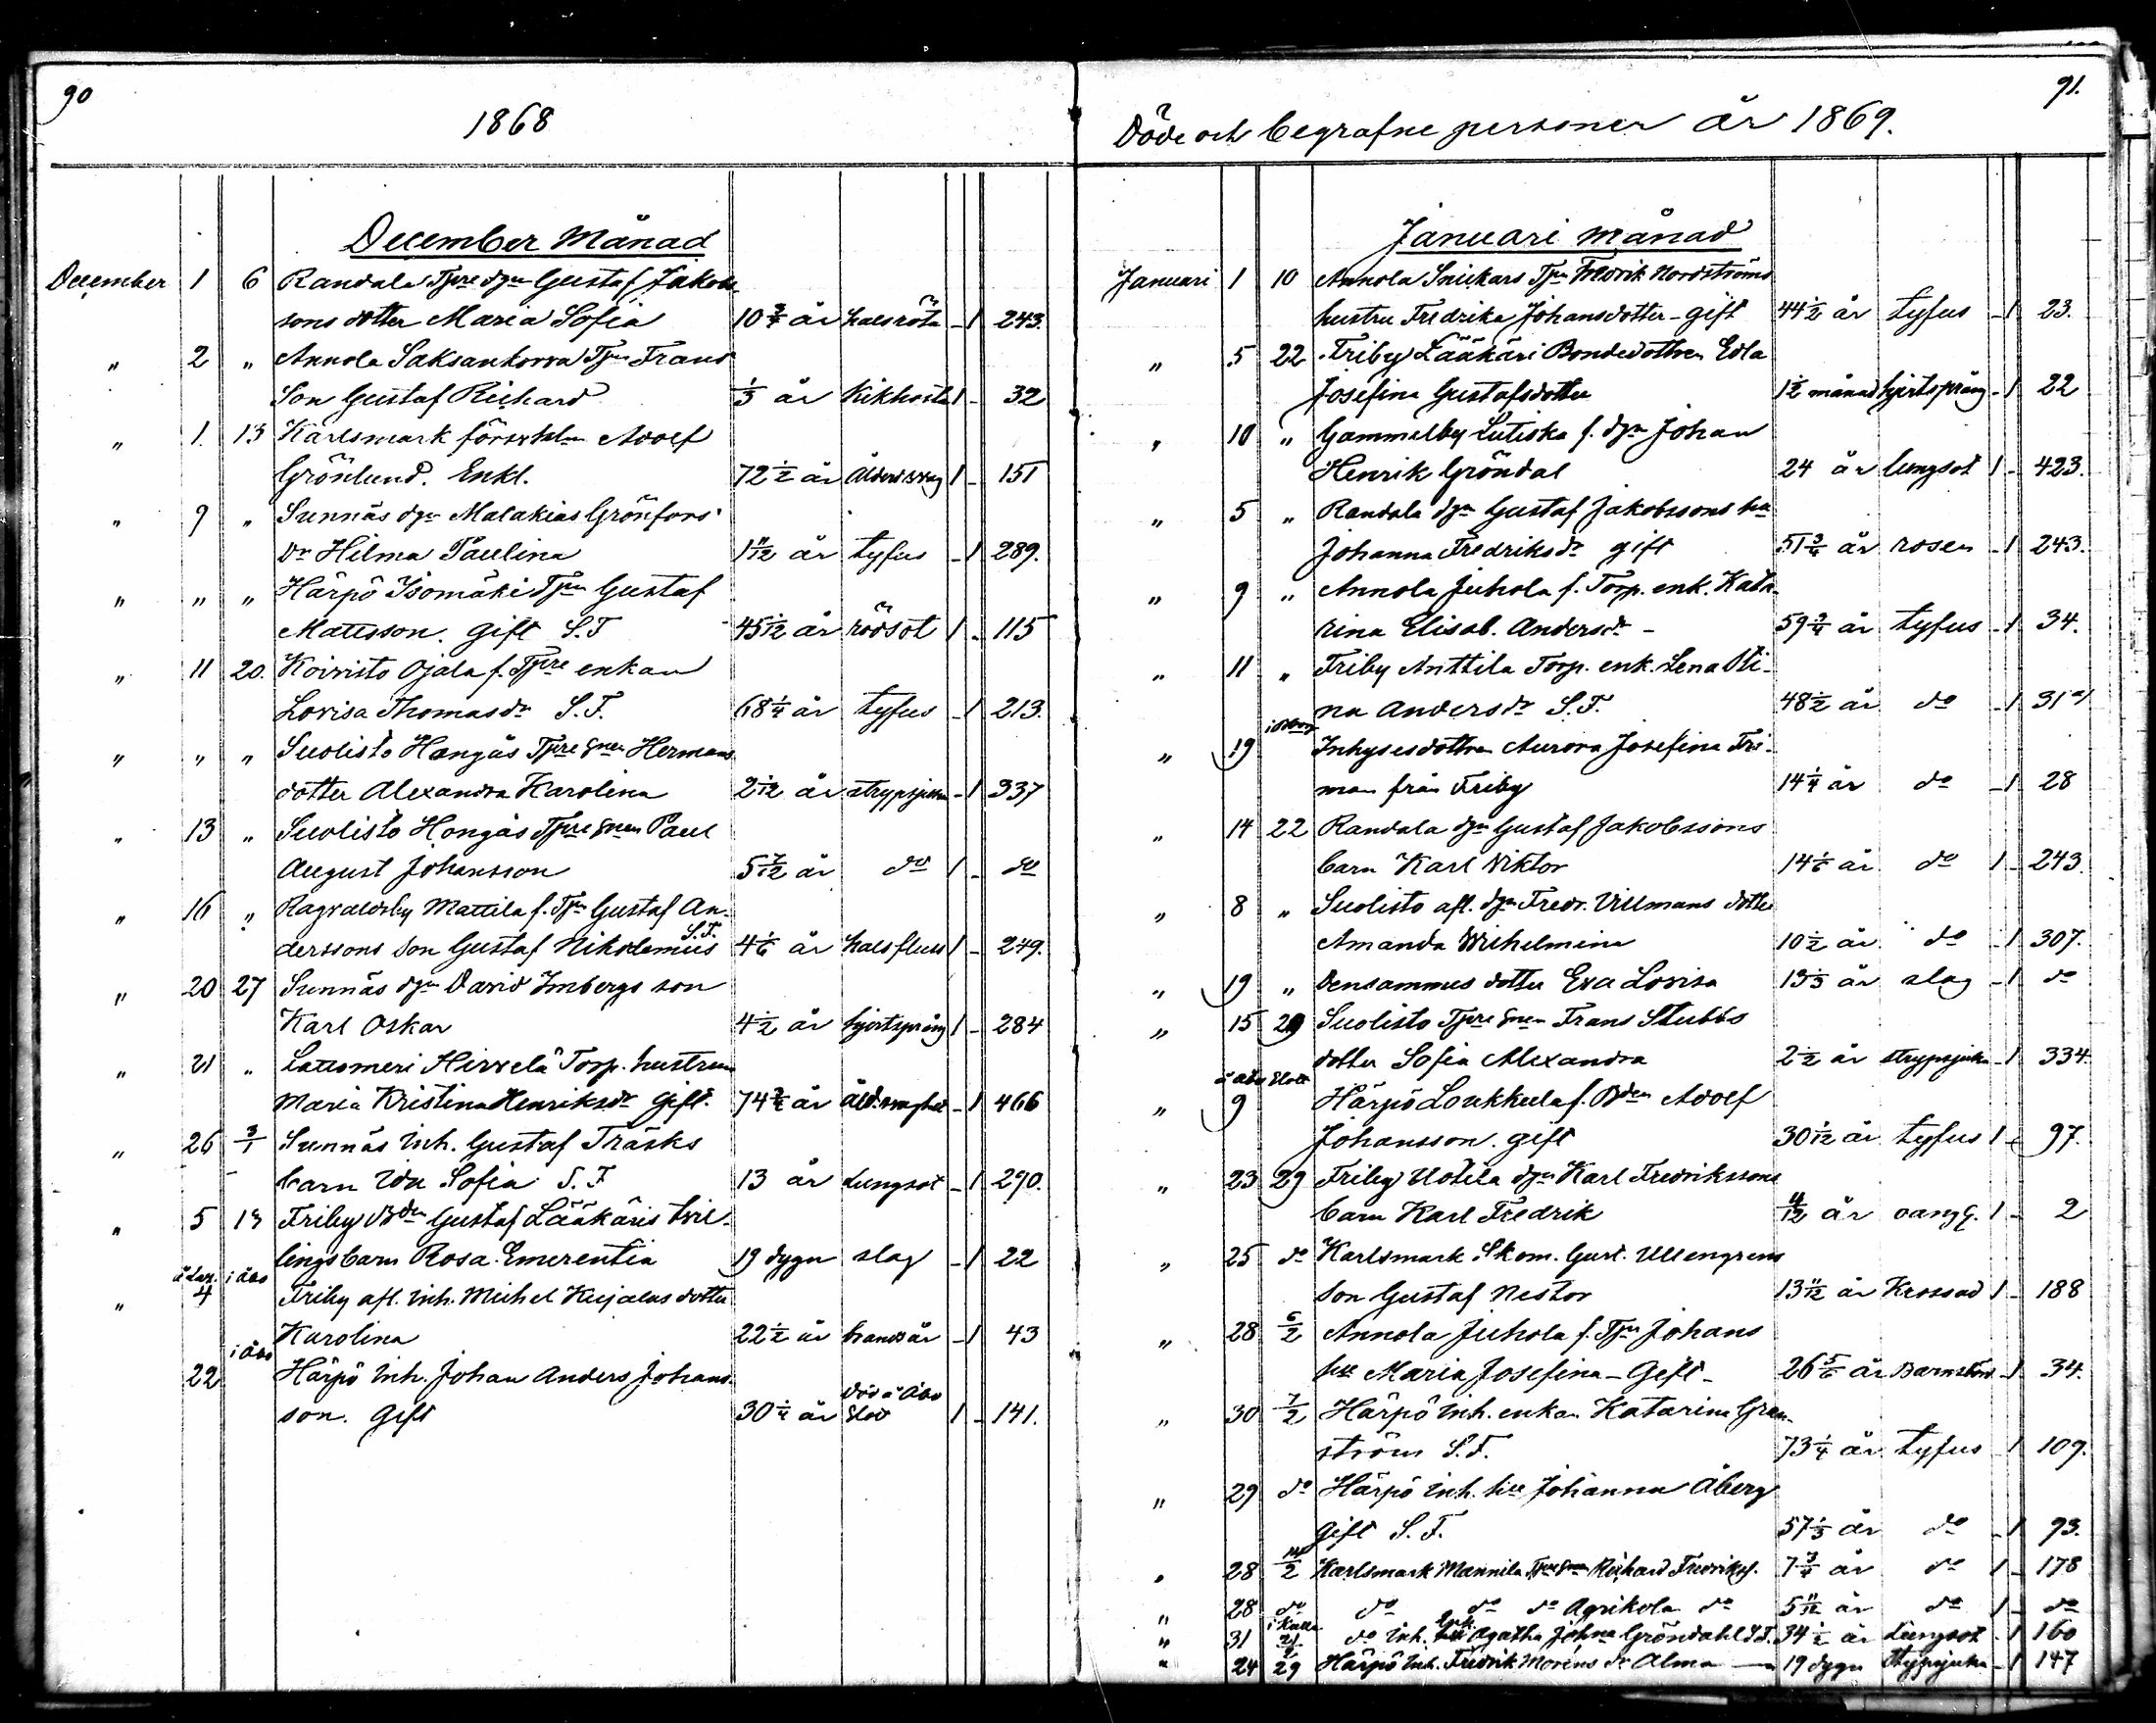 90
1868
December Månad
December 1 6 Randala Tjre dgn Gustaf Jakobs
sons dotter Maria Sofia 10 3/4 år halsröta - 1 243.
" 2 " Annola Saksankorva Tjn Frans
Son Gustaf Richard 1/3 år Kikhosta 1 - 32
" 1. 13 Karlsmark Adolf
Grönlund. Enkl. 72 1/2 år 1 - 151
" 9 " Sunnäs dgn Malakias Grönfors
Dr Hilma Paulina 1 11/12 år tyfus - 1 289.
" " " Härpö Isomäki Tjn Gustaf
Mattsson. gift S.F 45 1/12 år rödsot 1 - 115
" 11 20. Koivisto Ojala f. Tjre enkan
Lovisa Thomasdr S.F. 68 1/4 år tyfus - 1 213.
" " " Suolisto Hongäs Tjre Snen Hermans
dotter Alexandra Karolina 2 1/12 år strypsjukan - 1 337
" 13 " Suolisto Hongäs Tjre Snen Paul
August Johansson 5 7/12 år do 1 - do
" 16 " Ragvaldsby Mattila f. Tjn Gustaf An-
derssons Son Gustaf Nikodemus S.F. 4 1/6 år halsfluss 1 - 249.
" 20 27 Sunnäs dgn David Imbergs son
Karl Oskar 4 1/2 år hjertsprång 1 - 284
" 21 " Lattomeri Hirvelä Torp. hustrun
Maria Kristina Henriksdr gift. 74 3/4 år - 1 466
" 26 3/1 Sunnäs Inh. Gustaf Träsks
barn Ida Sofia S.F 13 år Lungsot - 1 290.
" 5 13 Friby Bden Gustaf Lääkäris tvil-
lingsbarn Rosa Emerentia 19 dygn slag - 1 22
" å Laz. 4 i Åbo Friby afl. Inh. Michel Kujalas dotter
Karolina 22 1/2 år - 1 43
22 i Åbo Härpö Inh. Johan Anders Johans-
son. Gift 30 1/4 år Död i Åbo Slot 1 - 141.
91.
Döde och begrafne personer år 1869.
Januari månad
Januari 1 10 Annola Snickars Tjn Fredrik Nordströms
hustru Fredrika Johansdotter - gift 44 1/2 år tyfus - 1 23.
" 5 22 Friby Lääkäri Bondedottren Edla
Josefina Gustafsdotter 1 1/2 månad hjertsprång - 1 22
" 10 " Gammelby Lutiska f. dgn Johan
Henrik Gröndal 24 år lungsot 1 - 423.
" 5 " Randala dgn Gustaf Jakobssons hu
Johanna Fredriksdr gift 51 3/4 år rosen - 1 243.
" 9 " Annola Juhola f. Torp. enk. Kata-
rina Elisab. Andersdr - 59 3/4 år tyfus - 1 34.
" 11 " Friby Anttila Torp. enk. Lena Sti-
na Andersdr S.F. 48 1/2 år do - 1 31
" 19 Inhysesdottren Aurora Josefina Fri-
man från Friby 14 1/4 år do - 1 28
" 14 22 Randala dgn Gustaf Jakobssons
barn Karl Viktor 14 1/6 år do 1 - 243.
" 8 " Suolisto afl. dgn Fredr. Villmans dotter
Amanda Wilhelmina 10 1/2 år do - 1 307.
" 19 " Densammes dotter Eva Lovisa 13 1/3 år slag - 1 do
" 15 29 Suolisto Tjre Snen Frans Stubbs
dotter Sofia Alexandra 2 1/2 år strypsjukan - 1 334.
" 9 å Åbo Slott Härpö Loukkula f. Bden Adolf
Johansson. gift 30 1/12 år tyfus 1 - 97.
" 23 29 Friby Uotila dgn Karl Fredrikssons
barn Karl Fredrik 4/12 år oang. 1 - 2
" 25 do Karlsmark Skom. Gust. Ullengrens
Son Gustaf Nestor 13 11/12 år Krossad 1 - 188
" 28 6/2 Annola Juhola f. Tjn Johans
hu Maria Josefina - Gift - 26 5/6 år Barnsbörd - 1 34.
" 30 7/2 Härpö Inh. enkan Katarina Gran-
ström S.F. 73 1/4 år tyfus - 1 109.
" 29 do Härpö Inh. hu Johanna Åberg
gift S.F. 57 1/3 år do - 1 93.
" 28 14/2 Karlsmark Mannila Tjre Snen Richard Fredriksn. 7 3/4 år do 1 - 178
" 28 do do do do Agrikola do 5 11/12 år do 1 - do
" 31 21/2 do Inh. Enk. Agatha Johna Gröndahl S.F. 34 1/2 år Lungsot - 1 160
" 24 29 Härpö Inh. Fredrik Moréns dr Alma — 19 dygn Strypsjukan - 1 147